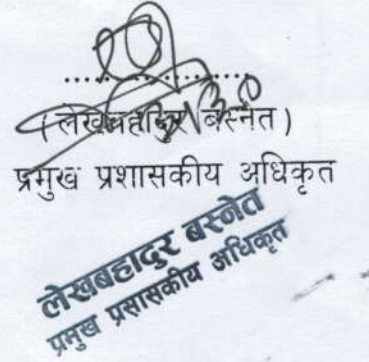 ....................
(लेखबहादुर बस्नेत)
प्रमुख प्रशासकीय अधिकृत
लेखबहादुर बस्नेत
प्रमुख प्रसासकीय अधिकृत